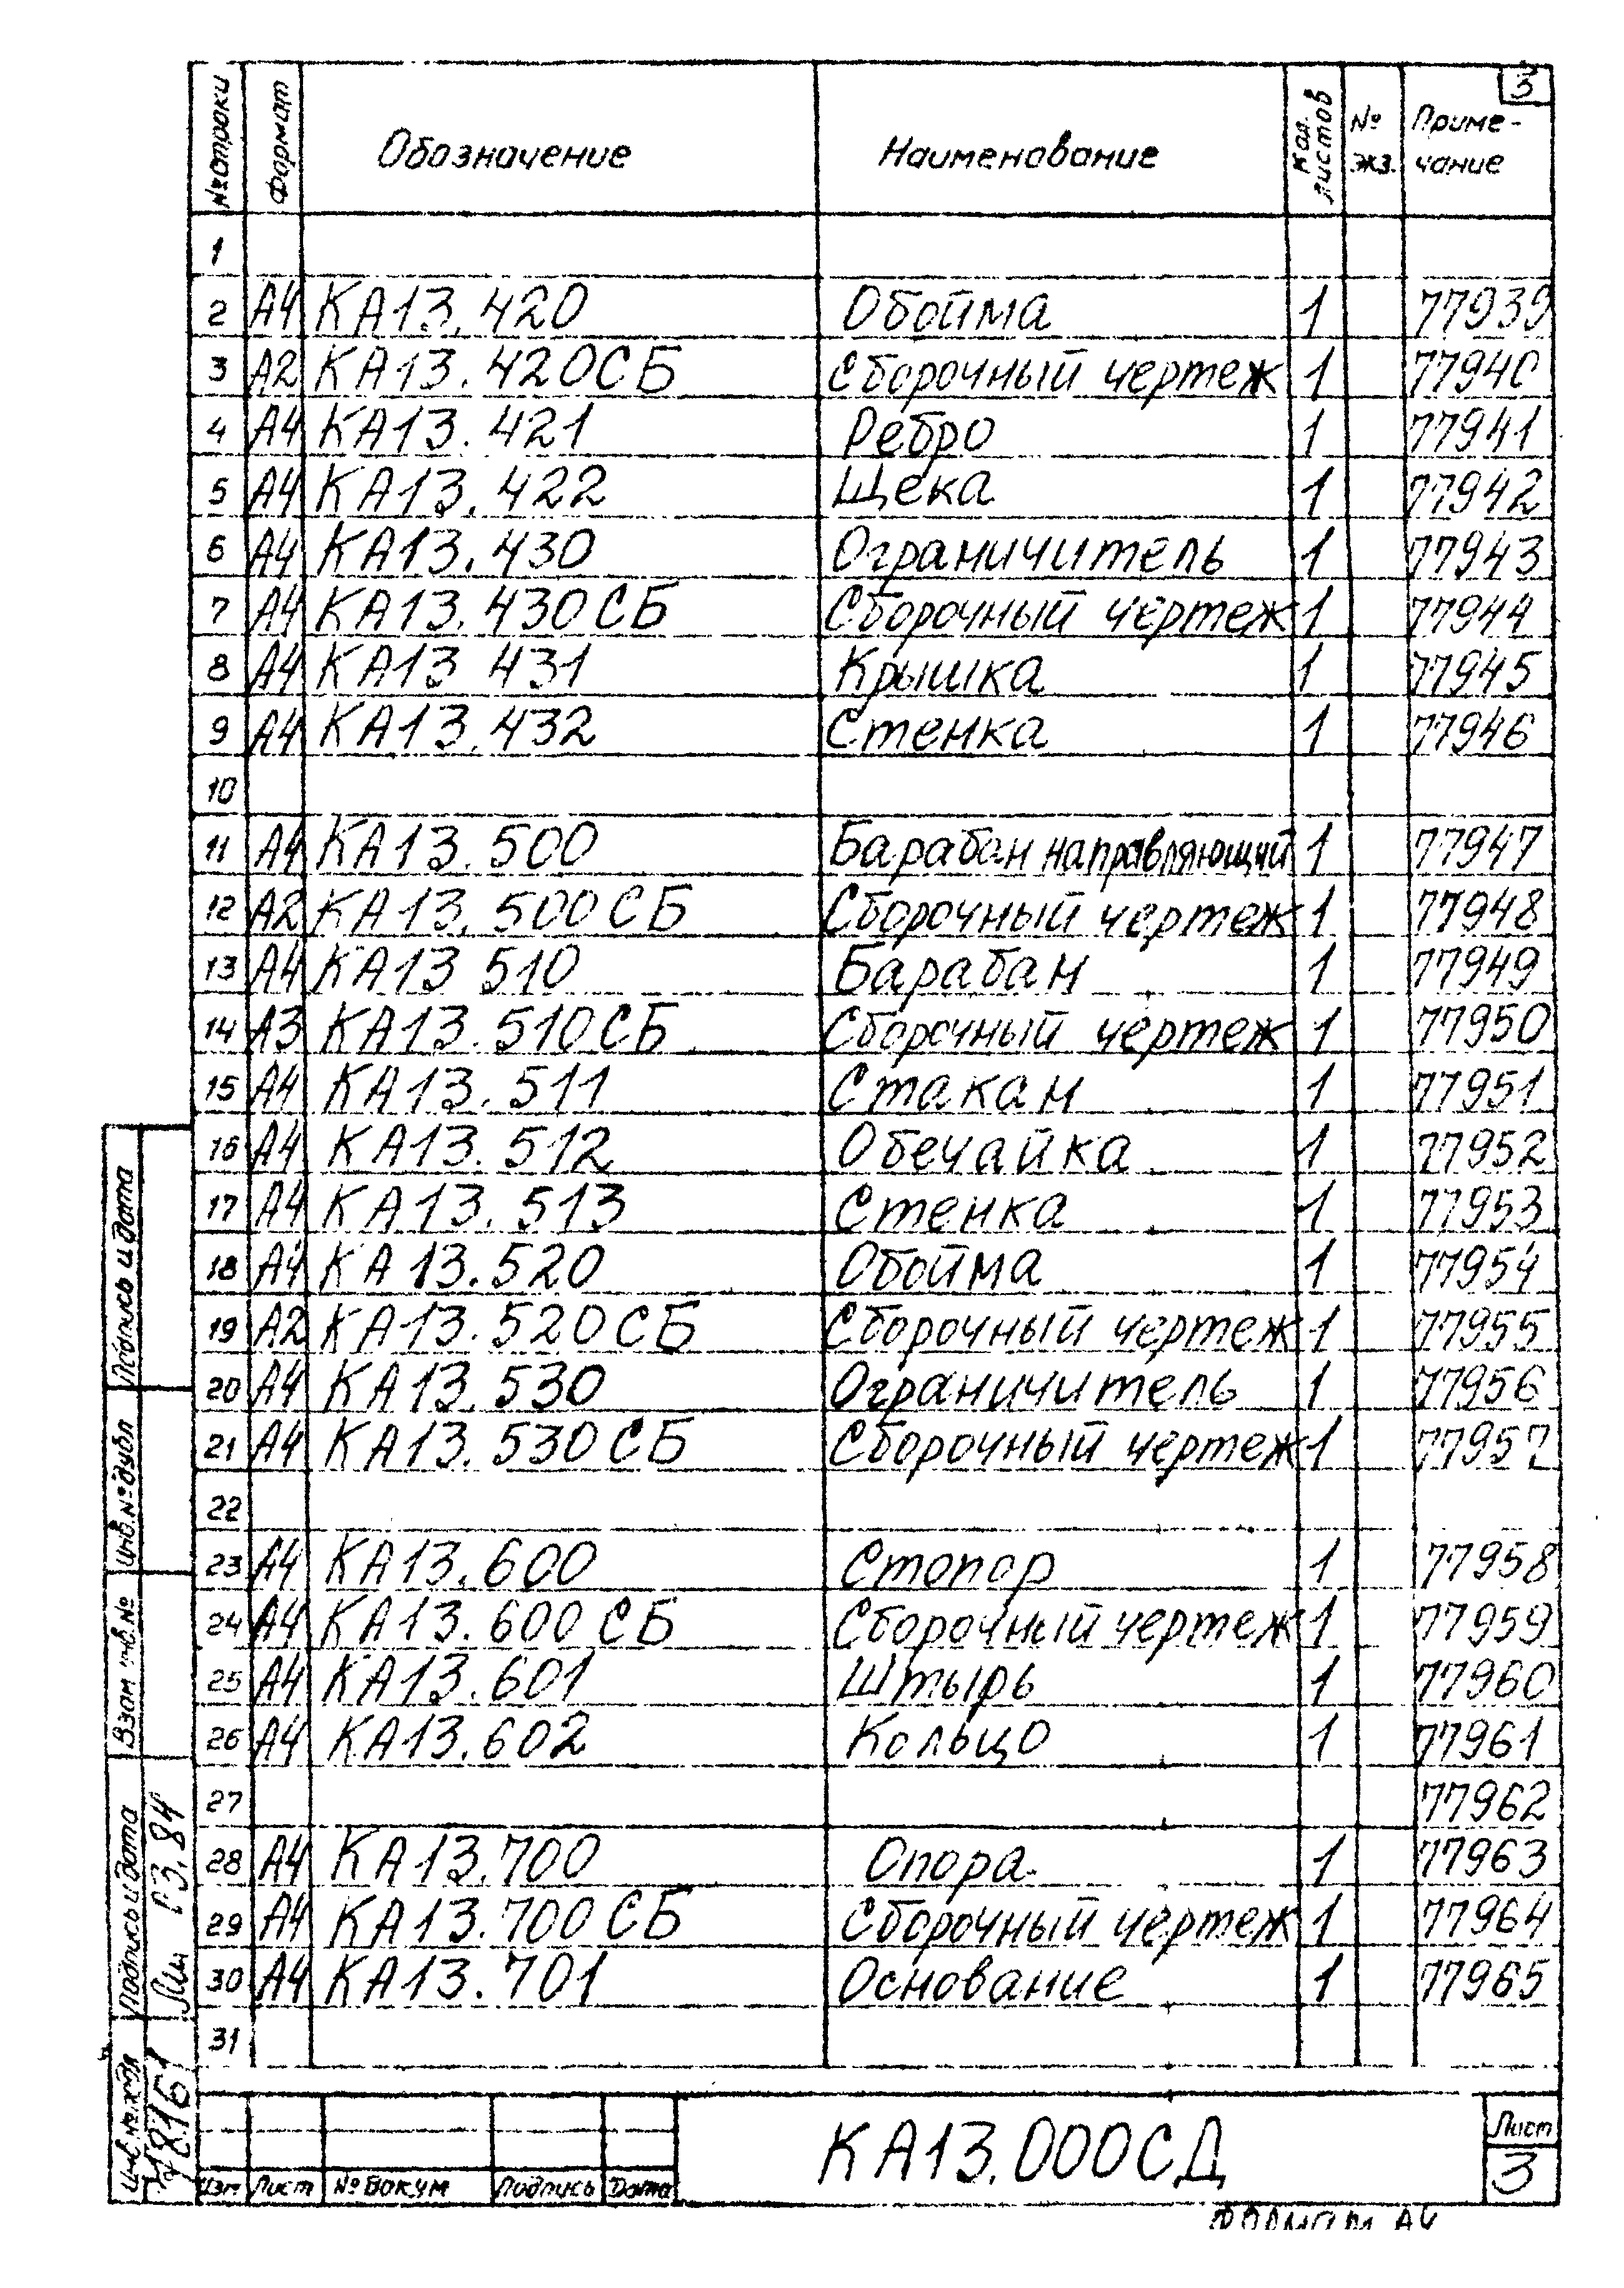 3
№ строки Формат Обозначение Наименование Кол. листов № экз. Приме-чание
1
2 А4 КА13.420 Обойма 1 77939
3 А2 КА13.420СБ Сборочный чертеж 1 77940
4 А4 КА13.421 Ребро 1 77941
5 А4 КА13.422 Щека 1 77942
6 А4 КА13.430 Ограничитель 1 77943
7 А4 КА13.430СБ Сборочный чертеж 1 77944
8 А4 КА13 431 Крышка 1 77945
9 А4 КА13.432 Стенка 1 77946
10
11 А4 КА13.500 Барабан направляющий 1 77947
12 А2 КА13.500СБ Сборочный чертеж 1 77948
13 А4 КА13 510 Барабан 1 77949
14 А3 КА13.510СБ Сборочный чертеж 1 77950
15 А4 КА13.511 Стакан 1 77951
16 А4 КА13.512 Обечайка 1 77952
17 А4 КА13.513 Стенка 1 77953
18 А4 КА13.520 Обойма 1 77954
19 А2 КА13.520СБ Сборочный чертеж 1 77955
20 А4 КА13.530 Ограничитель 1 77956
21 А4 КА13.530СБ Сборочный чертеж 1 77957
22
23 А4 КА13.600 Стопор 1 77958
24 А4 КА13.600СБ Сборочный чертеж 1 77959
25 А4 КА13.601 Штырь 1 77960
26 А4 КА13.602 Кольцо 1 77961
27 77962
28 А4 КА13.700 Опора 1 77963
29 А4 КА13.700СБ Сборочный чертеж 1 77964
30 А4 КА13.701 Основание 1 77965
31
Подпись и дата
Инв.№ дубл
Взам инв.№
Подпись и дата
Инв.№ подл
Изм Лист № Докум Подпись Дата
КА13.000СД
Лист
3
ФОРМАТ А4